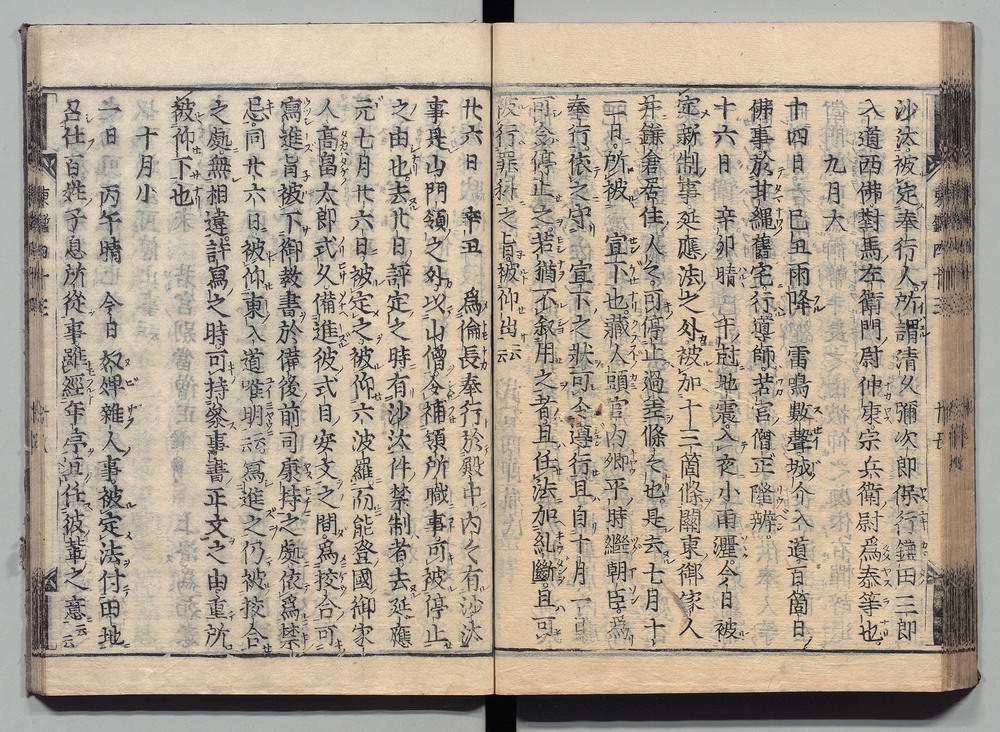 沙汰被定奉行人所謂清久彌次郎保行鎌田三郎
入道西佛對馬左衛門尉仲康宗兵衛尉爲泰等也
九月大
十四日 己丑雨降 雷鳴數聲城介入道百箇日
佛事於甘繩舊宅行導師若宮僧正隆辨
十六日 辛卯晴 午尅地震入夜小雨灑今日被
定新制事延應法之外被加十三箇條關東御家人
并鎌倉居住人々可停止過差條々也是去七月十
二日所被 宣下也藏人頭宮内卿平時繼朝臣爲
奉行依之守 宣下之狀可令遵行且自十月一日
可令停止之若猶不叙用之者且任法加糺斷且可
被行罪科之旨被仰出云云
廿六日 辛丑 爲倫長奉行於殿中内々有沙汰
事是山門領之外以山僧令補領所職事可被停止
之由也去廿日評定之時有沙汰件禁制者去延應
元七月廿六日被定之被仰六波羅而能登國御家
人高畠太郎式久備進彼式日安文之間爲挍合可
寫進旨被下御教書於備後前司康持之處依爲禁
忌同廿六日被仰東入道唯明云云寫進之仍被挍合
之處無相違詳寫之時可持參事書正文之由重所
被仰下也
十月小
一日 丙午晴 今日奴婢雜人事被定法付田地
召仕百姓子息所從事雖經年序宜任彼輩之意云云